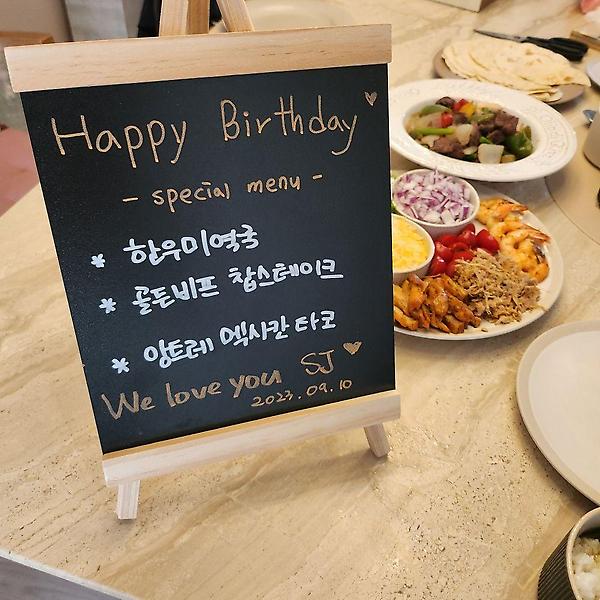 Happy Birthday ♡
- special menu -
* 한우미역국
* 골든비프 찹스테이크
* 앙트레 멕시칸 타코
We love you SJ ♡
2023.09.10